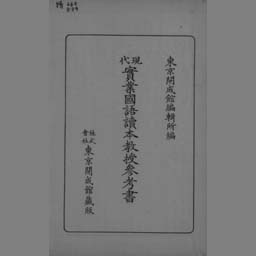 東京開成館編輯所編
現代
實業國語讀本教授參考書
株式
會社
東京開成館藏版